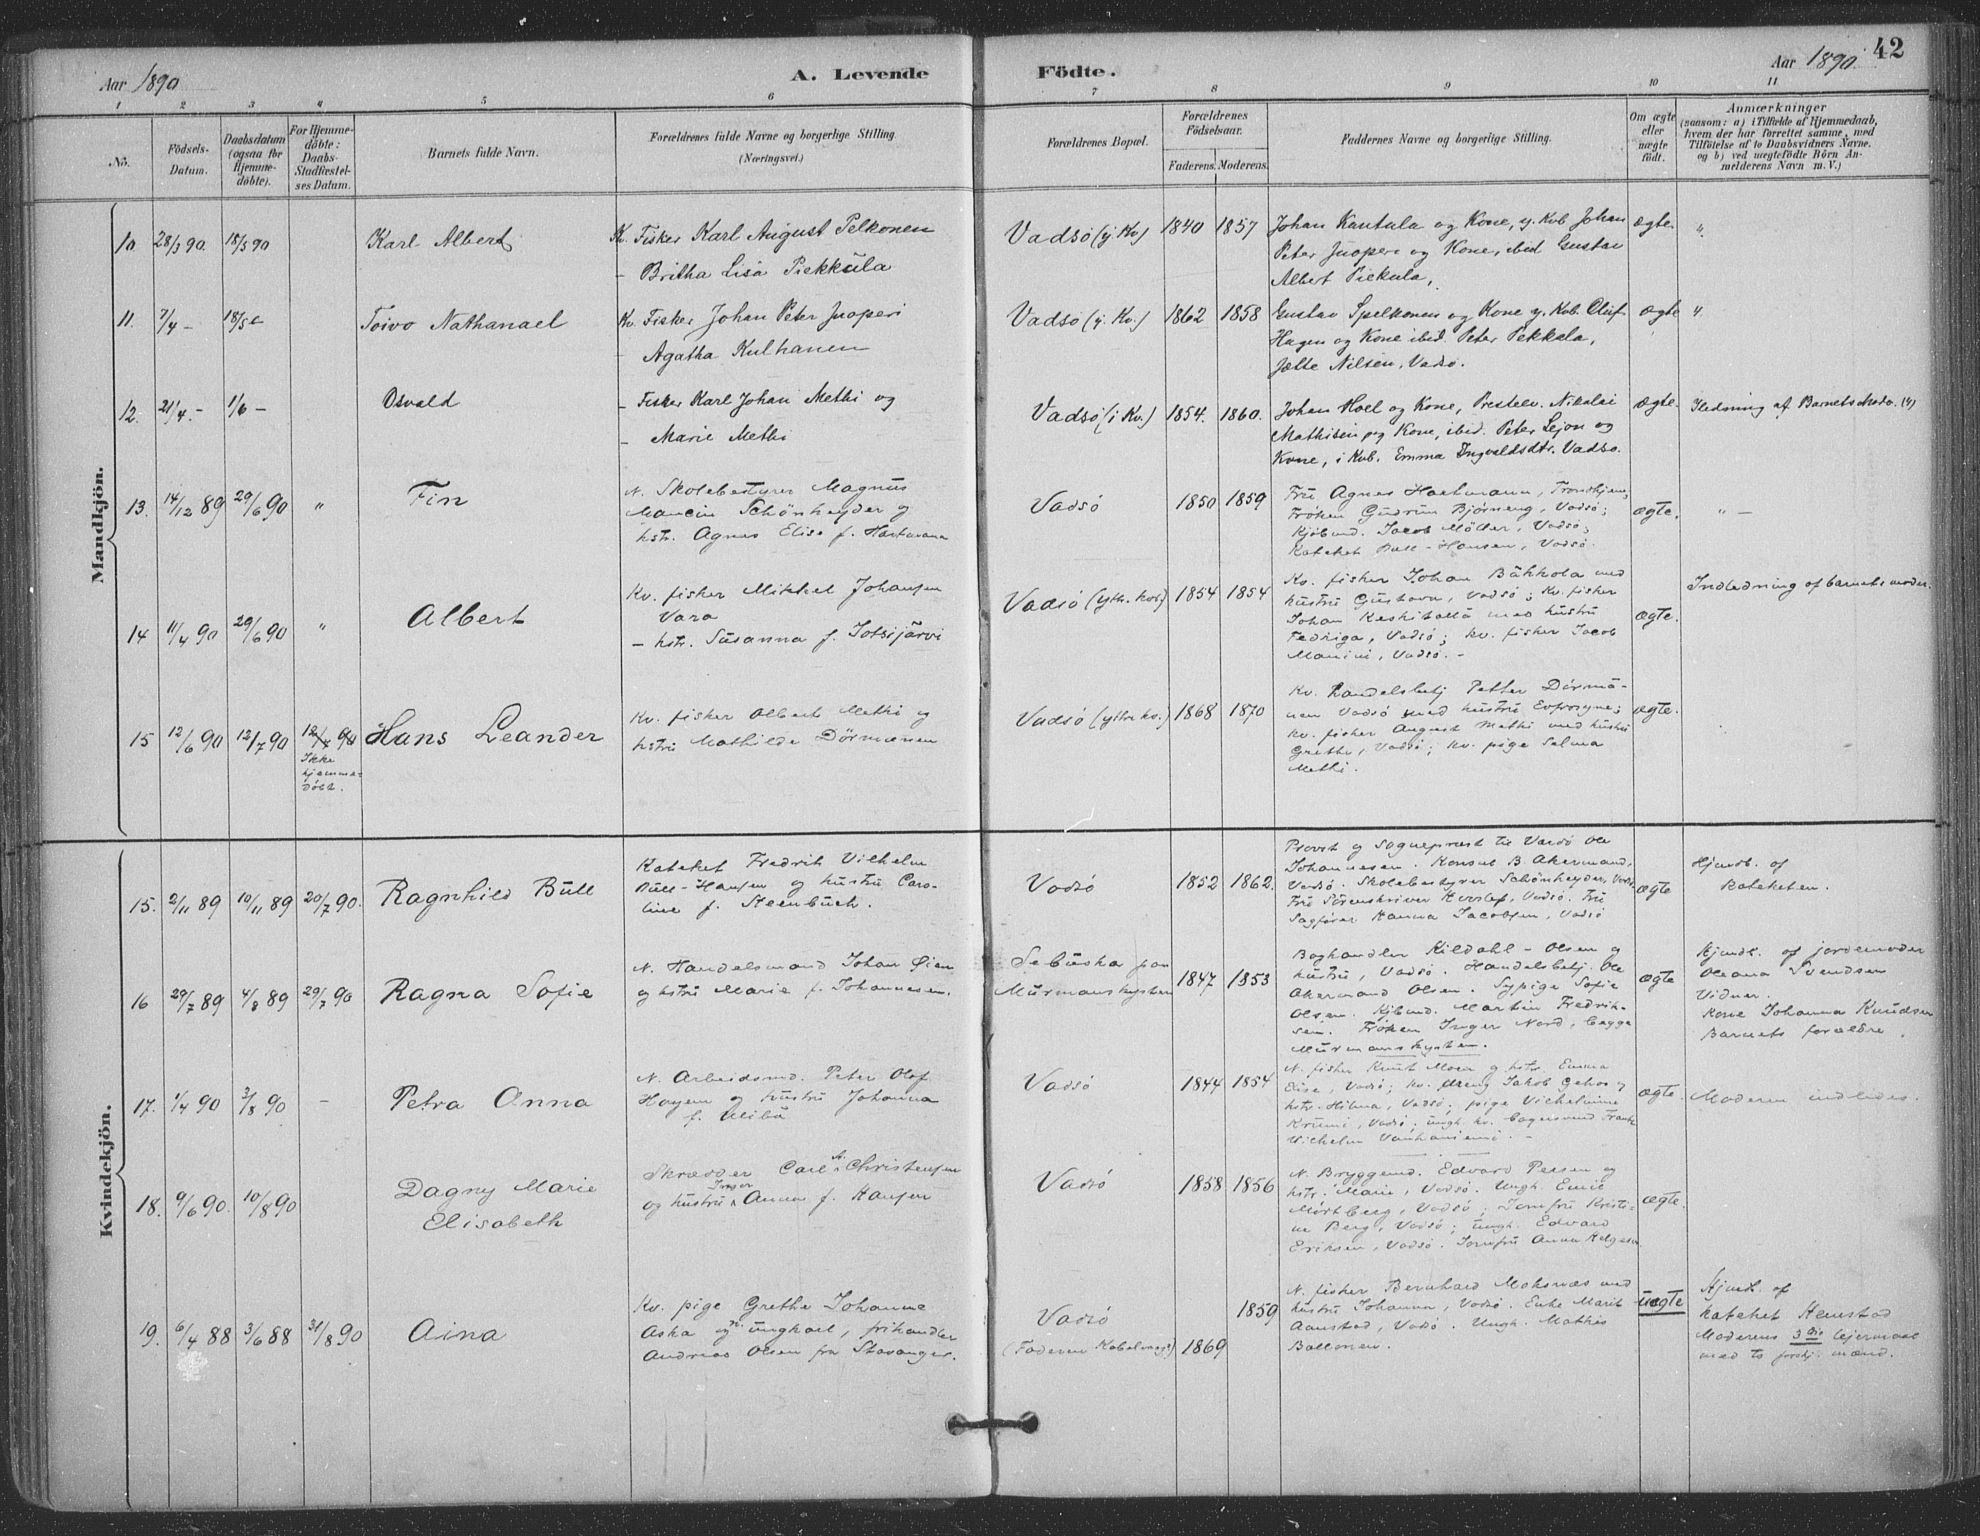 42
Aar 1890
A. Levende
Födte.
Aar 1890
1 2 3 4 5 6 7 8 9 10 11
No.
Födsels-
Datum.
Daabsdatum
(ogsaa for
Hjemme-
döbte).
For Hjemme-
döbte:
Daabs-
Stadfæstel-
ses Datum.
Barnets fulde Navn.
Forældrenes fulde Navne og borgerlige Stilling.
(Næringsvei.)
Forældrenes Bopæl.
Forældrenes
Födselsaar.
Faderens. Moderens.
Faddernes Navne og borgerlige Stilling.
Om ægte
eller
uægte
födt.
Anmærkninger
(saasom: a) i Tilfælde af Hjemmedaab,
hvem der har forrettet samme, med
Tilföielse af to Daabsvidners Navne,
og b) ved uægtefödte Börn An-
melderens Navn m. V.)
Mandkjön.
10 28/3 90. 18/5 90
Karl Albert
Kv. Fisker Karl August Pelkonen
- Britha Lisa Piekkula
Vadsö (y. Kv.) 1840 1857
Johan Kantula og Kone, y. Kvb. Johan
Peter Juoperi og Kone, ibid Gustav
Albert Piekula,
ægte. "
11. 7/4 - 18/5 -
Toivo Nathanael
Kv. Fisker Johan Peter Juoperi
- Agatha Kulhanen
Vadsö (y. Kv.) 1862 1858
Gustav Spelkonen og Kone y. Kvb. Oluf
Hagen og Kone ibid. Peter Pekkala,
Jette Nilsen, Vadsö.
ægte "
12. 21/4. - 1/6 -
Osvald
- Fisker Karl Johan Methi og
- Marie Methi
Vadsö (i Kv.) 1854. 1860.
Johan Hoel og Kone, Prestelv. Nikolai
Mathisen og Kone, ibid. Peter Lejon og
Kone, i Kvb. Emma Ingvaldsdtr. Vadsö.
ægte. Iledning af Barnets Moder. (4)
13. 14/12 89 29/6 90 "
Fin
N. Skolebestyrer Magnus
Mancin Schönheyder og
hstr. Agnes Elise f. Hartmann
Vadsö 1850 1859
Frü Agnes Hartmann, Trondhjem;
Fröken Gudrun Björneng, Vadsö;
Kjöbmd. Jacob Möller, Vadsö;
Kateket Bull-Hansen, Vadsö.
ægte. " -
14 11/4 90 29/6 90 "
Albert
Kv. fisker Mikkel Johansen
Vara
- hstr. Susanna f. Jotsijärvi
Vadsö (ytre kvb) 1854 1854
Kv. fisker Johan Bäkkola med
hustru Gustava, Vadsö; kv. fisker
Johan Keskitallä med hustru
Fedriga, Vadsö; kv. fisker Jacob
Manini, Vadsö. -
ægte. Indledning af barnets moder.
15 12/6 90 12/7 90 12/7 90
Ikke
hjemme-
döbt.
Hans Leander
Kv. fisker Albert Methi og
hstrü Mathilde Dörmænen
Vadsö (ytre kv.) 1868 1870
Kv. handelsbetj Petter Dörmä-
nen Vadsö med hustru Evfrosyne;
kv. fisker August Methi med hustri
Grethe, Vadsö; kv. pige Selma
Methi.
ægte.
Kvindekjön.
15. 2/11 89 10/11 89 20/7 90.
Ragnhild Büll
Kateket Fredrik Vilhelm
Büll-Hansen og hustrü Caro-
line f. Steenbuch.
Vadsö 1852 1862.
Provst og Sogneprest til Vardö Ole
Johannesen. Konsul B Akermand,
Vadsö. Skolebestyrer Schönheyder, Vadsö
Frü Sörenskriver, Vadsö. Frü
Sagförer Hanna Jacobsen, Vadsö
ægte
Hjmdb. af
kateketen.
16 29/7 89 4/8 89 29/7 90
Ragna Sofie
N. Handelsmand Johan Öien
og hstrü Marie f. Johannesen.
Sebüska paa
Mürmanskysten 1847 1853
Boghandler Kildahl-Olsen og
hustrü, Vadsö. Handelsbetj. Ole
Akermand Olsen. Sypige Sofie
Olsen. Kjbmd. Martin Fredrik-
sen. Fröken Inger Nord, begge
Mürmanskysten.
ægte
Hjmdb. af jordemoder
Oleana Svendsen
Vidner.
Kone Johanna Knudsen
Barnets forældre.
17. 1/4 90 3/8 90 -
Petra Anna
N. Arbeidsmd. Peter Olof
Hagen og hustrü Johanna
f. Ulibü
Vadsö 1844 1854
N. fisker Knut Moen og hstr. Emma
Elise, Vadsö; kv. dreng Jakob og
hstr. Hilma, Vadsö; pige Vilhelmine
Krumi, Vadsö; ungk. kv. Frants
Vilhelm
ægte. Moderen indledes.
18. 9/6 90. 10/8 90
Dagny Marie
Elisabeth
Skrædder Carl A. Christensen
og hustrü Inger Anna f. Hansen
Vadsö 1858 1856
N. Bryggemd. Edvard Persen og
hstr. Marie, Vadsö. Ungk. Emil
Mörtberg, Vadsö; Jomfrü Kristi-
ne Berg, Vadsö; ungk. Edvard
Eriksen, Vadsö. Jomfrü Anna Helgesen
ægte.
19. 6/4 88 3/6 88 31/8 90
Aina
Kv. pige Grethe Johanne
Aska og n. ungkarl, frihandler
Andreas Olsen fra Stavanger.
Vadsö
(Faderen Kabelvaag?) 1869 1859
N. fisker Bernhard Moksnæs med
hustrü Johanna, Vadsö. Enke Marit
Aanstad, Vadsö. Ungk. Mathis
Ballonen.
üægte
Hjmdb. af
kateket Hemstad
Moderens 3die leiermaal
med to forskj. mænd.